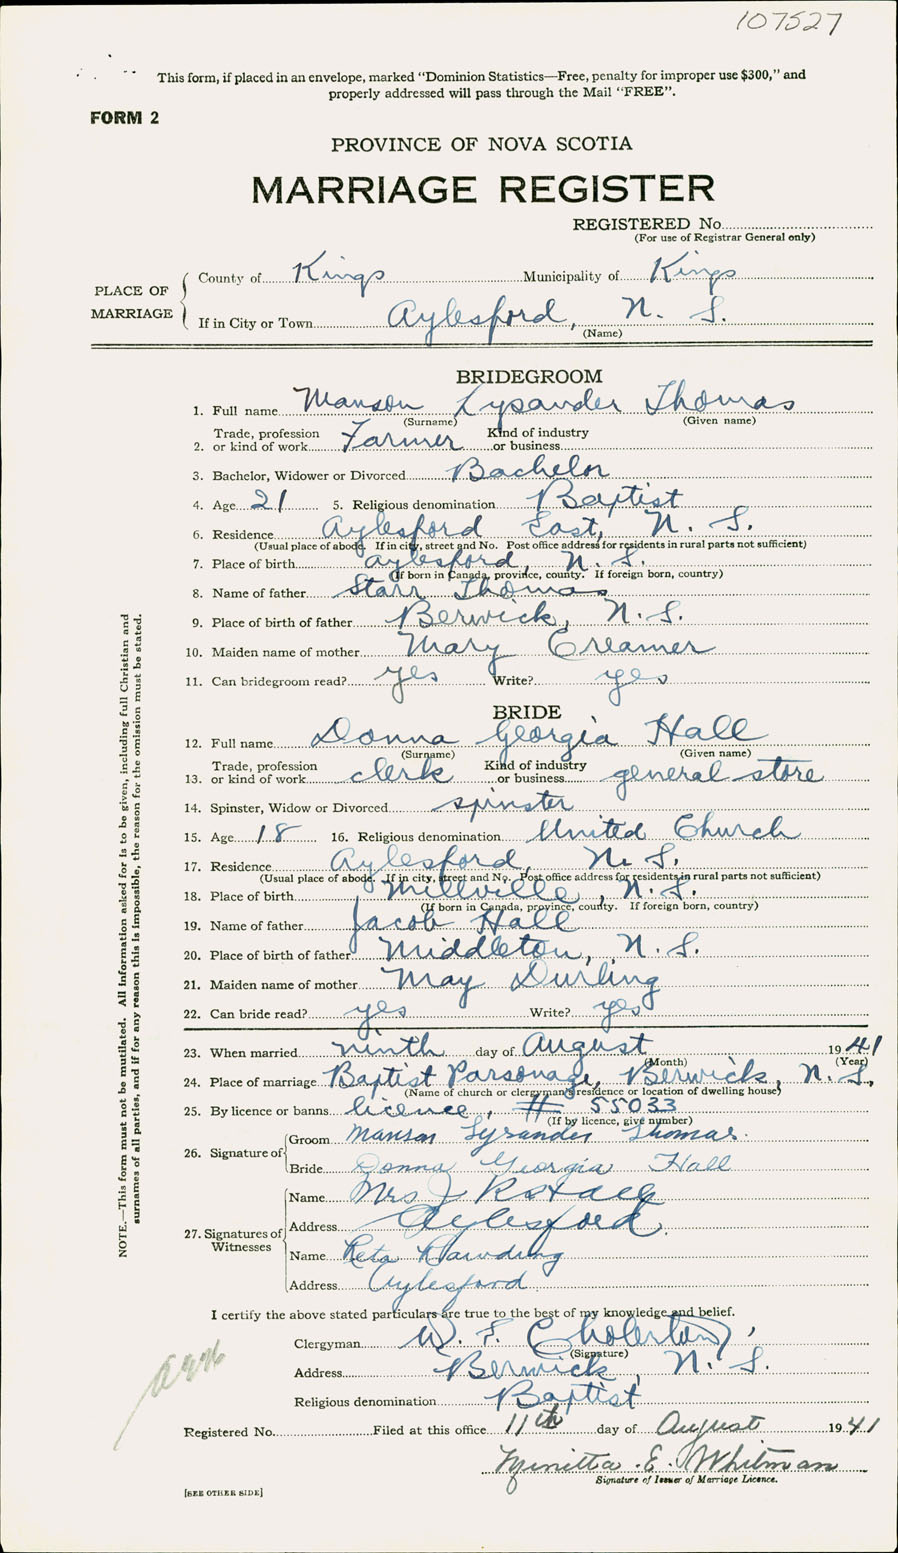 107527
This form, if placed in an envelope, marked "Dominion Statistics—Free, penalty for improper use $300," and
properly addressed will pass through the Mail "FREE".
FORM 2
PROVINCE OF NOVA SCOTIA
MARRIAGE REGISTER
REGISTERED No.
(For use of Registrar General only)
PLACE OF MARRIAGE
County of Kings Municipality of Kings
If in City or Town Aylesford, N. S.
(Name)
BRIDEGROOM
1. Full name Manson Lysander Thomas
(Surname) (Given name)
2. Trade, profession or kind of work Farmer Kind of industry or business
3. Bachelor, Widower or Divorced Bachelor
4. Age 21 5. Religious denomination Baptist
6. Residence Aylesford East, N. S.
(Usual place of abode. If in city, street and No. Post office address for residents in rural parts not sufficient)
7. Place of birth Aylesford, N. S.
(If born in Canada, province, county. If foreign born, country)
8. Name of father Starr Thomas
9. Place of birth of father Berwick, N. S.
10. Maiden name of mother Mary Creamer
11. Can bridegroom read? yes Write? yes
BRIDE
12. Full name Donna Georgia Hall
(Surname) (Given name)
13. Trade, profession or kind of work clerk Kind of industry or business general store
14. Spinster, Widow or Divorced spinster
15. Age 18 16. Religious denomination United Church
17. Residence Aylesford, N. S.
(Usual place of abode. If in city, street and No. Post office address for residents in rural parts not sufficient)
18. Place of birth Millville, N. S.
(If born in Canada, province, county. If foreign born, country)
19. Name of father Jacob Hall
20. Place of birth of father Middleton, N. S.
21. Maiden name of mother May Durling
22. Can bride read? yes Write? yes
23. When married ninth day of August 1941
(Month) (Year)
24. Place of marriage Baptist Parsonage, Berwick, N. S.,
(Name of church or clergyman's residence or location of dwelling house)
25. By licence or banns licence, # 55033
(If by licence, give number)
26. Signature of
Groom Manson Lysander Thomas.
Bride Donna Georgia Hall
27. Signatures of Witnesses
Name Mrs J
Address Aylesford.
Name Reta Rawding
Address Aylesford
I certify the above stated particulars are true to the best of my knowledge and belief.
Clergyman W. S. Cholerton,
(Signature)
Address Berwick, N. S.
Religious denomination Baptist
Registered No. Filed at this office 11th day of August 1941
Minetta . E. Whitman
Signature of Issuer of Marriage Licence.
[SEE OTHER SIDE]
NOTE.—This form must not be mutilated. All Information asked for is to be given, including full Christian and
surnames of all parties, and if for any reason this is impossible, the reason for the omission must be stated.